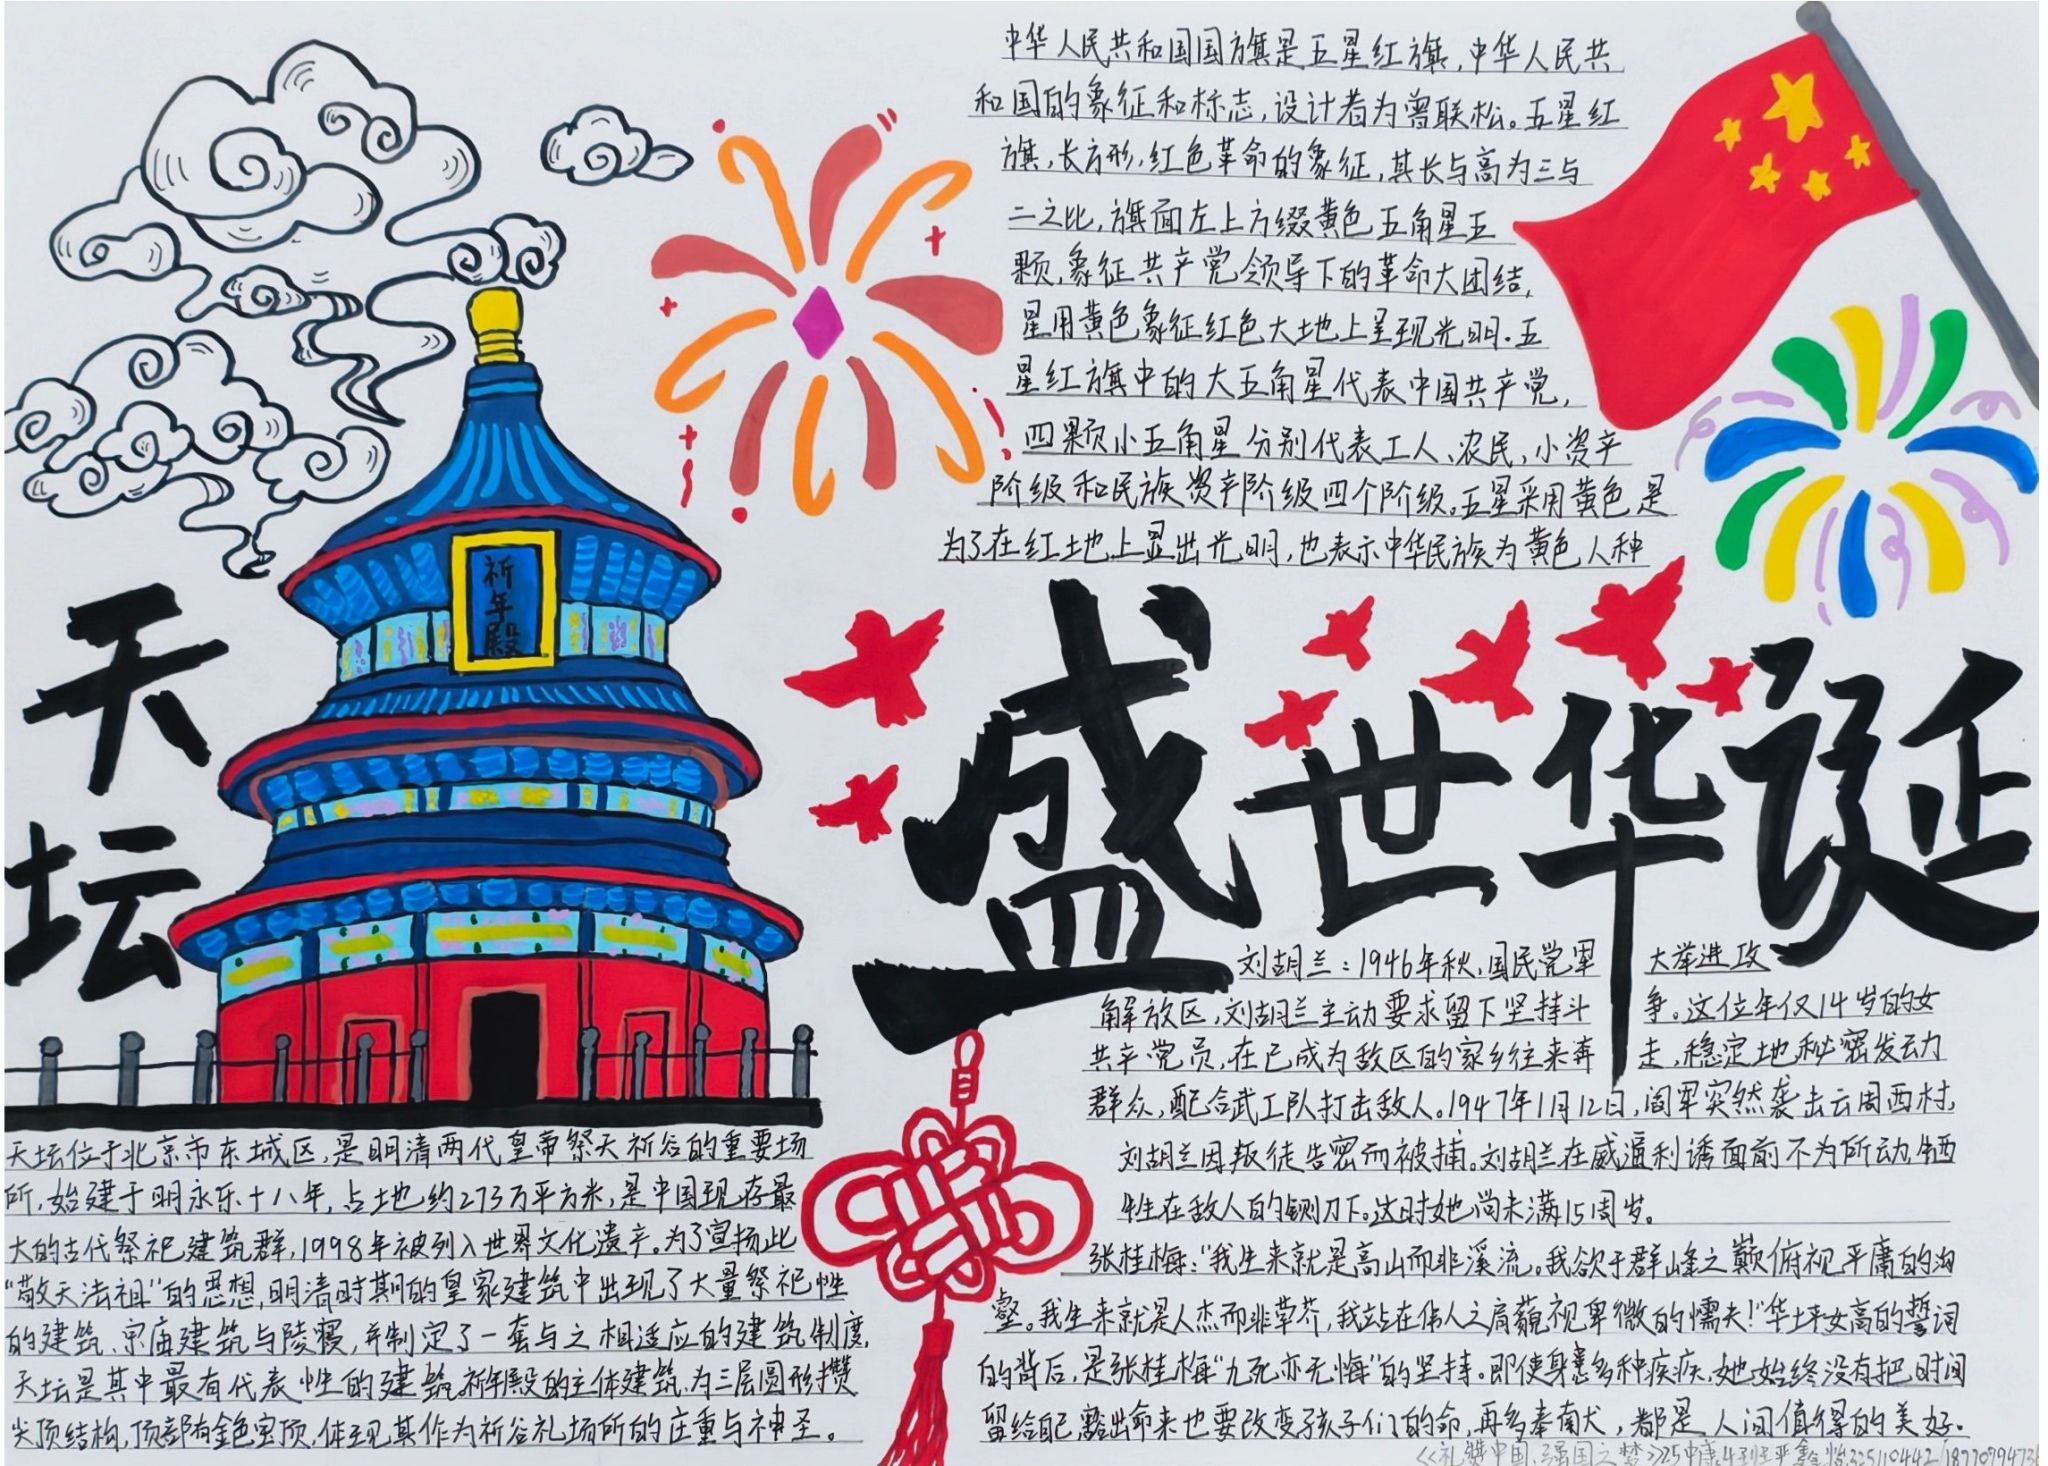 中华人民共和国国旗是五星红旗,中华人民共
和国的象征和标志,设计者为曾联松。五星红
旗,长方形,红色革命的象征,其长与高为三与
二之比,旗面左上方缀黄色五角星五
颗,象征共产党领导下的革命大团结,
星用黄色象征红色大地上呈现光明.五
星红旗中的大五角星代表中国共产党,
四颗小五角星分别代表工人、农民,小资产
阶级和民族资产阶级四个阶级。五星采用黄色是
为了在红土地上显出光明,也表示中华民族为黄色人种
祈年殿
天坛
盛世华诞
天坛位于北京市东城区,是明清两代皇帝祭天祈谷的重要场
所,始建于明永乐十八年,占土地约273万平方米,是中国现存最
大的古代祭祀建筑群,1998年被列入世界文化遗产。为了宣扬此
“敬天法祖”的思想,明清时期的皇家建筑中出现了大量祭祀性
的建筑、宗庙建筑与陵寝,并制定了一套与之相适应的建筑制度,
天坛是其中最有代表性的建筑.祈年殿的主体建筑,为三层圆形攒
尖顶结构,顶部有金色宝顶,体现其作为祈谷礼场所的庄重与神圣。
刘胡兰:1946年秋,国民党军 大举进攻
解放区,刘胡兰主动要求留下坚持斗 争。这位年仅14岁的女
共产党员,在已成为敌区的家乡往来奔 走,稳定地秘密发动
群众,配合武工队打击敌人。1947年1月12日,阎军突然袭击云周西村,
刘胡兰因叛徒告密而被捕。刘胡兰在威逼利诱面前不为所动,牺
牲在敌人的铡刀下。这时她尚未满15周岁。
张桂梅:“我生来就是高山而非溪流。我欲于群峰之巅俯视平庸的沟
壑。我生来就是人杰而非草芥,我站在伟人之肩藐视卑微的懦夫!”华坪女高的誓词
的背后,是张桂梅“九死亦无悔”的坚持。即使身患多种疾病,她始终没有把时间
留给自己,豁出命来也要改变孩子们的命,再多奉南犬,都是人间值得的美好.
《礼赞中国,强国之梦》25中康4班